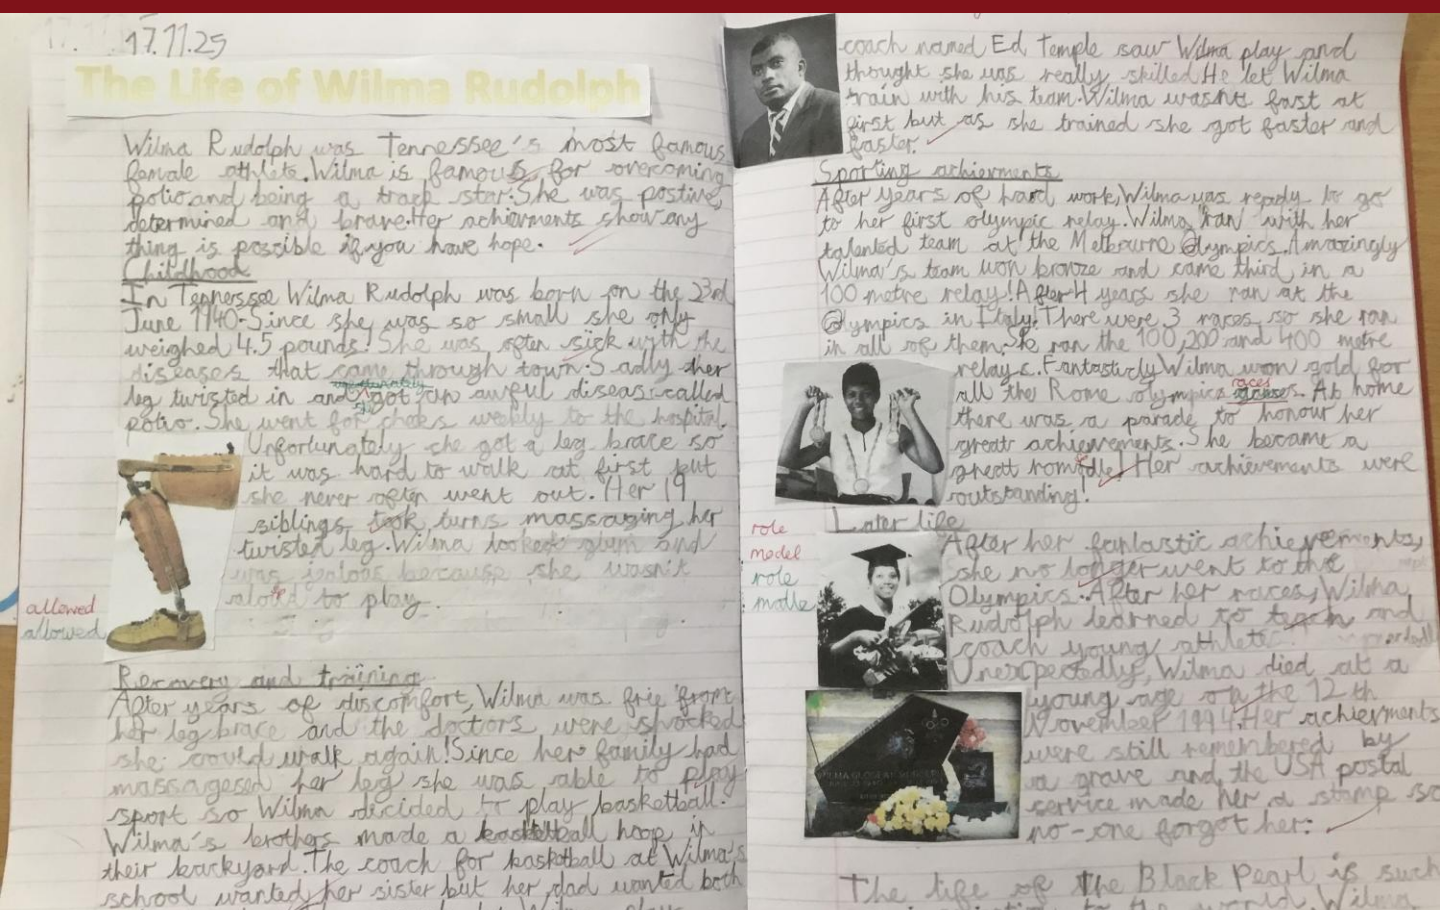 17.11.25
The Life of Wilma Rudolph
Wilma Rudolph was Tennessee's most famous
female athlete. Wilma is famous for overcoming
polio and being a track star. She was postive,
determined and brave. Her achievments show any
thing is possible if you have hope.
Childhood
In Tennessee Wilma Rudolph was born on the 23rd
June 1940. Since she was so small she only
weighed 4.5 pounds! She was often sick with the
diseases that came through town. Sadly her
unfortunately
leg twisted in and she got an awful diseas called
polio. She went for cheks weekly to the hospital.
Unfortunately she got a leg brace so
it was hard to walk at first but
she never often went out. Her 19
siblings took turns massaging her
twisted leg. Wilma looked glum and
was jealous because she wasn't
to play.
allowed
allowed
Recovery and training
After years of discomfort, Wilma was frie from
her leg brace and the doctors were shocked
she could walk again! Since her family had
massagesed her leg she was able to play
sport so Wilma decided to play basketball.
Wilma's brothers made a basketball hoop in
their backyard. The coach for basketball at Wilma's
school wanted her sister but her dad wanted both
coach named Ed Temple saw Wilma play and
thought she was really skilled. He let Wilma
train with his team. Wilma wasn't fast at
first but as she trained she got faster and
faster.
Sporting achievments
After years of hard work, Wilma was ready to go
to her first olympic relay. Wilma ran with her
talented team at the Melbourne Olympics. Amazingly
Wilma's team won bronze and came third in a
100 metre relay! After 4 years she ran at the
Olympics in Italy. There were 3 races, so she ran
in all of them. She ran the 100, 200 and 400 metre
relays. Fantasticly Wilma won gold for
races
all the Rome olympics. At home
there was a parade to honour her
great achievements. She became a
great. Her achievements were
outstanding!
role
model
role
modle
Later life
After her fantastic achievements,
she no longer went to the
Olympics. After her races, Wilma
Rudolph learned to teach and
coach young athletic
Unexpectedly, Wilma died at a
young age on the 12th
November 1994. Her achievments
were still remembered by
a grave and the USA postal
service made her a stamp so
no-one forgot her.
The life of the Black Pearl is such